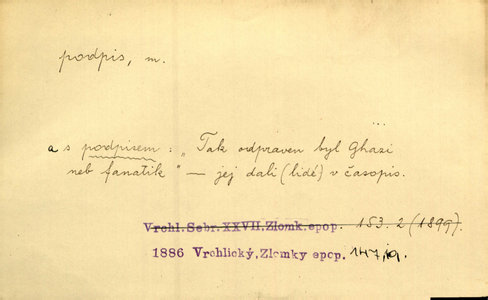 podpis, m.
a s podpisem : „Tak odpraven byl Ghazi
neb fanatik" — jej dali (lidé) v časopis.
Vrchl. Sebr. XXVII. Zlomk. epop. 153. 2 (1899).
1886 Vrchlický, Zlomky epop. 147,